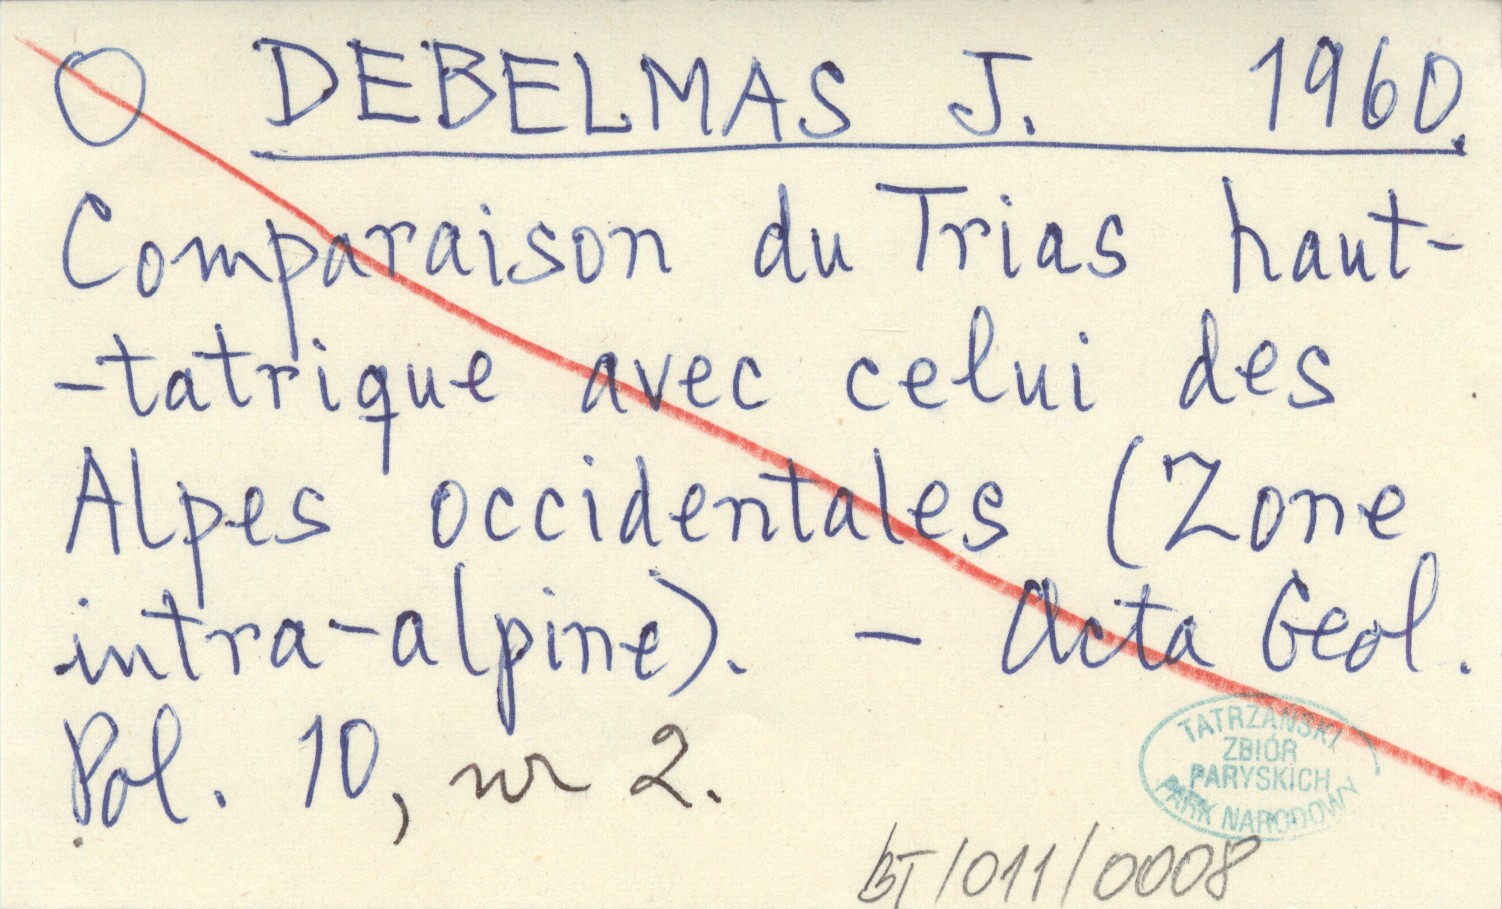 O DEBELMAS J. 1960.
Comparaison du Trias haut-
-tatrique avec celui des
Alpes occidentales (Zone
intra-alpine). - Acta Geol.
Pol. 10, nr 2.
TATRZAŃSKI
ZBIÓR
PARYSKICH
PARK NARODOWY
BT/011/0008